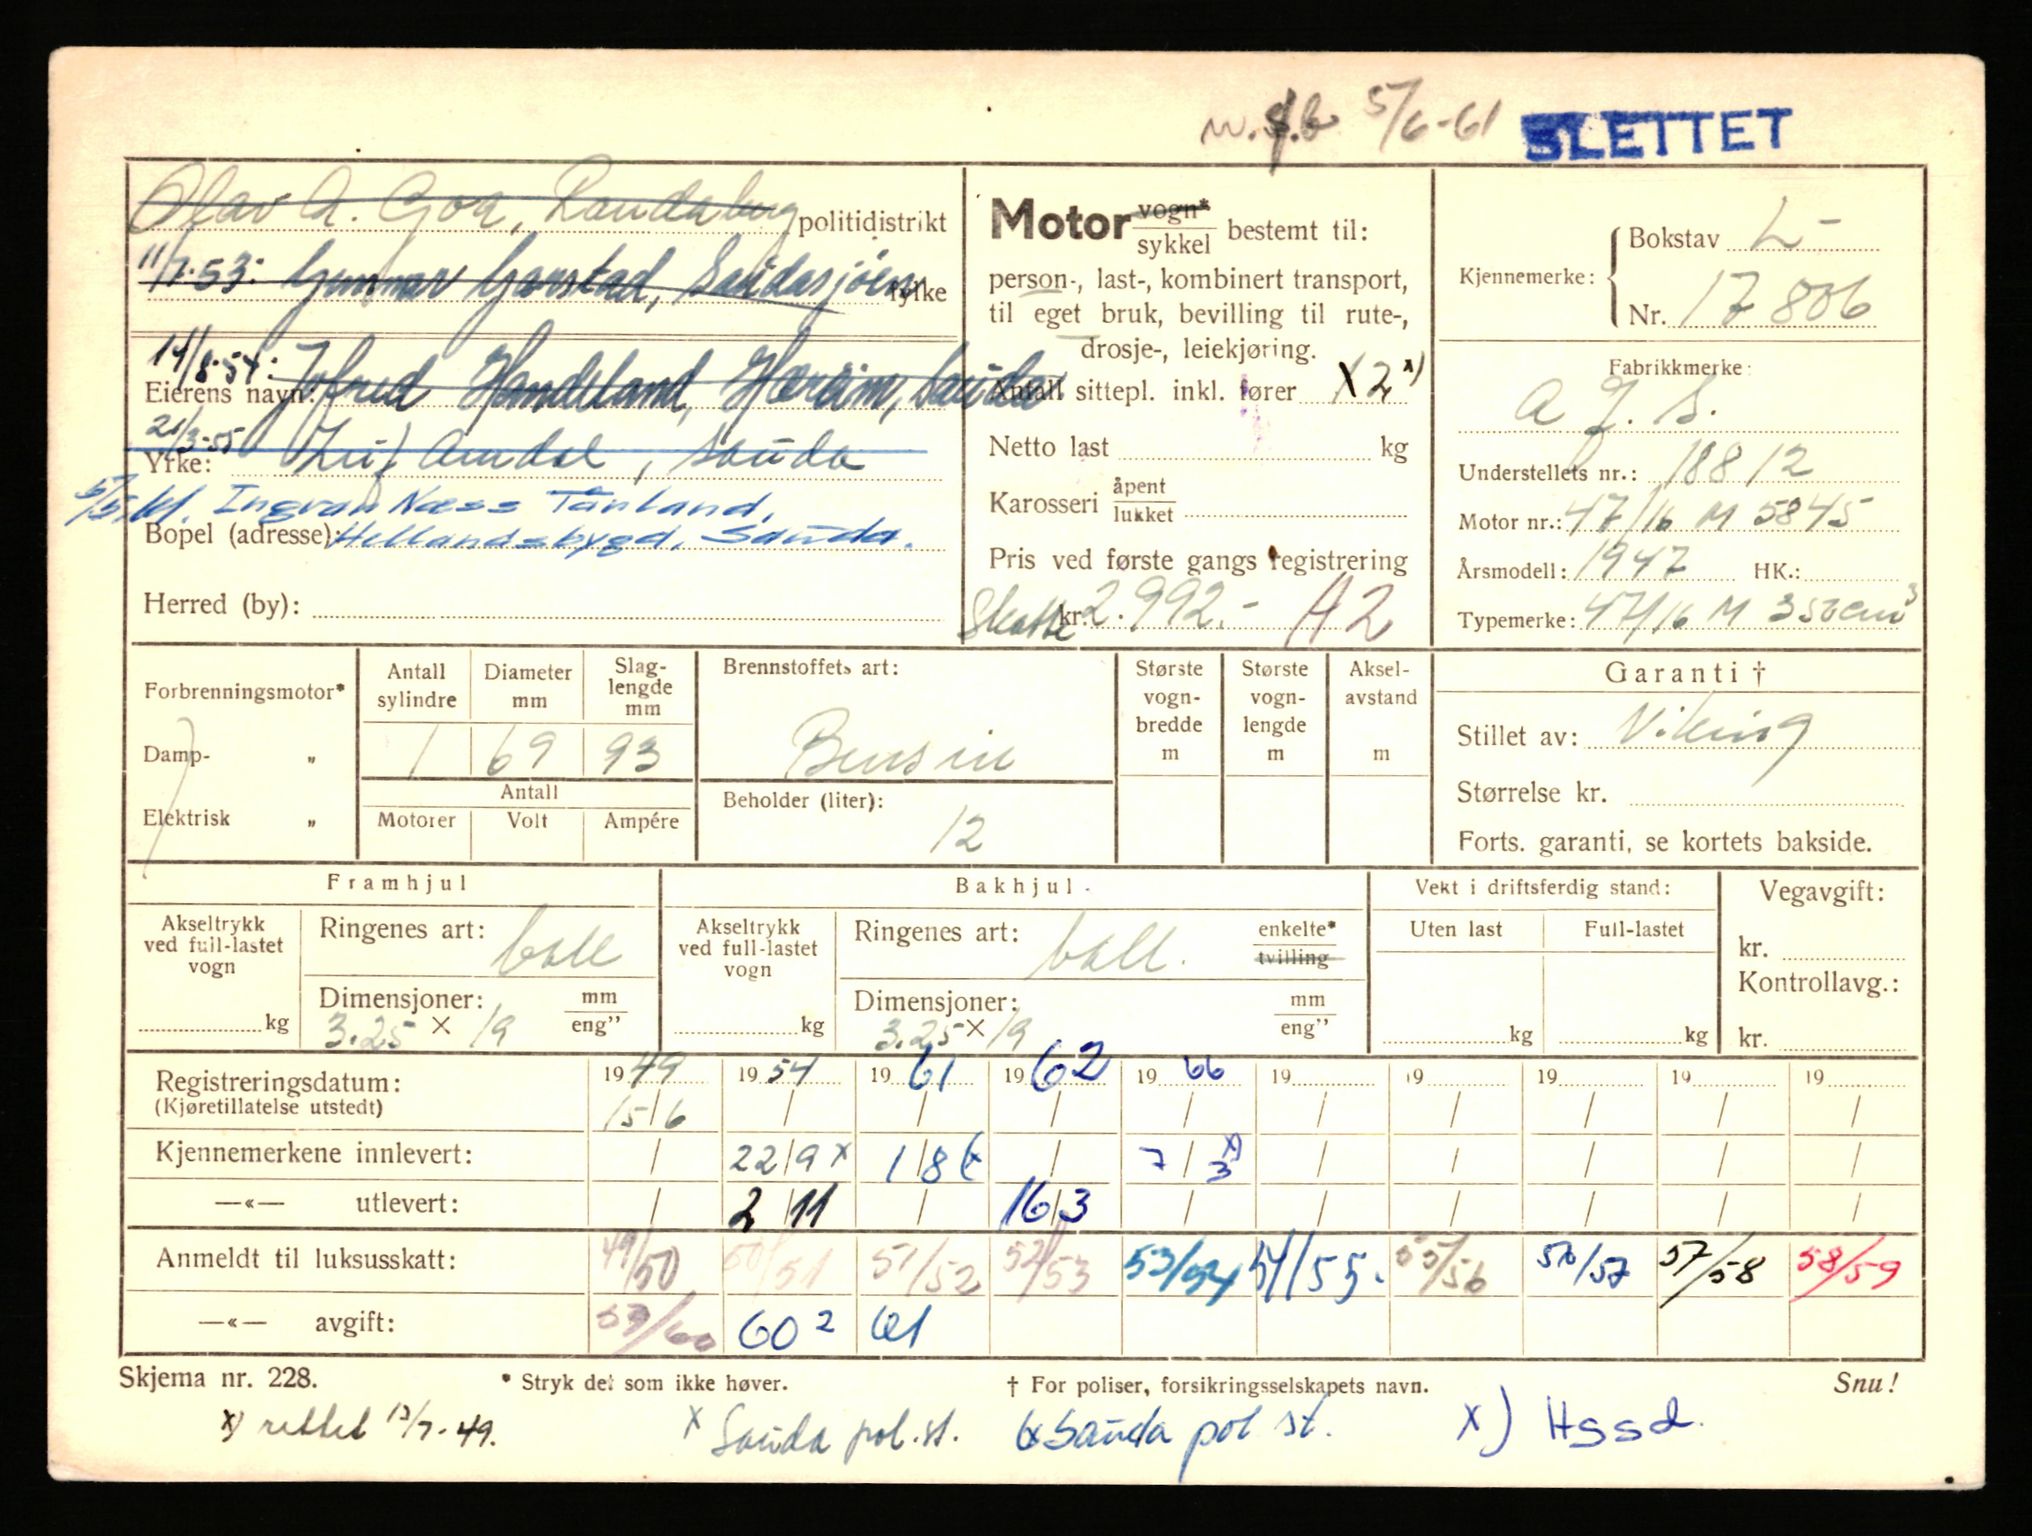 5/6-61 SLETTET
Olav A. Goa, Randaberg politidistrikt
11/7.53: Gunnar Gorstad, Saudasjöen fylke
14/8.54: Handeland, Sauda
Eierens navn:
21/3-55 Leif Amdal, Sauda
Yrke:
Ingvar Næss Tånland,
Bopel (adresse): Hellandsbygd, Sauda.
Herred (by):
Motor vogn* sykkel bestemt til:
person-, last-, kombinert transport,
til eget bruk, bevilling til rute-,
drosje-, leiekjøring.
Antall sittepl. inkl. fører X 2 x)
Netto last kg
Karosseri åpent lukket
Pris ved første gangs registrering
Skatte kr. 2992.- A2
Kjennemerke: Bokstav L-
Nr. 17806
Fabrikkmerke:
A J. S.
Understellets nr.: 18812
Motor nr.: 47/16 M 5845
Årsmodell: 1947 HK.:
Typemerke: 47/16 M 350 cm3
Forbrenningsmotor*
Damp- „
Elektrisk „
Antall sylindre Diameter mm Slag-lengde mm
1 69 93
Antall
Motorer Volt Ampére
Brennstoffets art:
Bensin
Beholder (liter):
12
Største vogn-bredde m
Største vogn-lengde m
Aksel-avstand m
Garanti †
Stillet av: Viking
Størrelse kr.
Forts. garanti, se kortets bakside.
Framhjul
Akseltrykk ved full-lastet vogn kg
Ringenes art: ball
Dimensjoner: mm eng”
3.25 x 19
Bakhjul
Akseltrykk ved full-lastet vogn kg
Ringenes art: ball. enkelte* tvilling
Dimensjoner: mm eng”
3.25 x 19
Vekt i driftsferdig stand:
Uten last Full-lastet
kg kg
Vegavgift:
kr.
Kontrollavg.:
kr.
Registreringsdatum: 1949 1954 1961 1962 1966 19 19 19 19 19
(Kjøretillatelse utstedt) 15/6 / / / / / / / / /
Kjennemerkene innlevert: / 22/9 x 1/8 / 7/3 x) / / / / /
—«— utlevert: / 2/11 / 16/3 / / / / / /
Anmeldt til luksusskatt: 49/50 50/51 51/52 52/53 53/54 54/55. 55/56 56/57 57/58 58/59
—«— avgift: 59/60 60 2 61
Skjema nr. 228. * Stryk det som ikke høver. † For poliser, forsikringsselskapets navn. Snu!
x) rettet 12/7-49. x Sauda pol.st. Sauda pol st. x) Hssd.